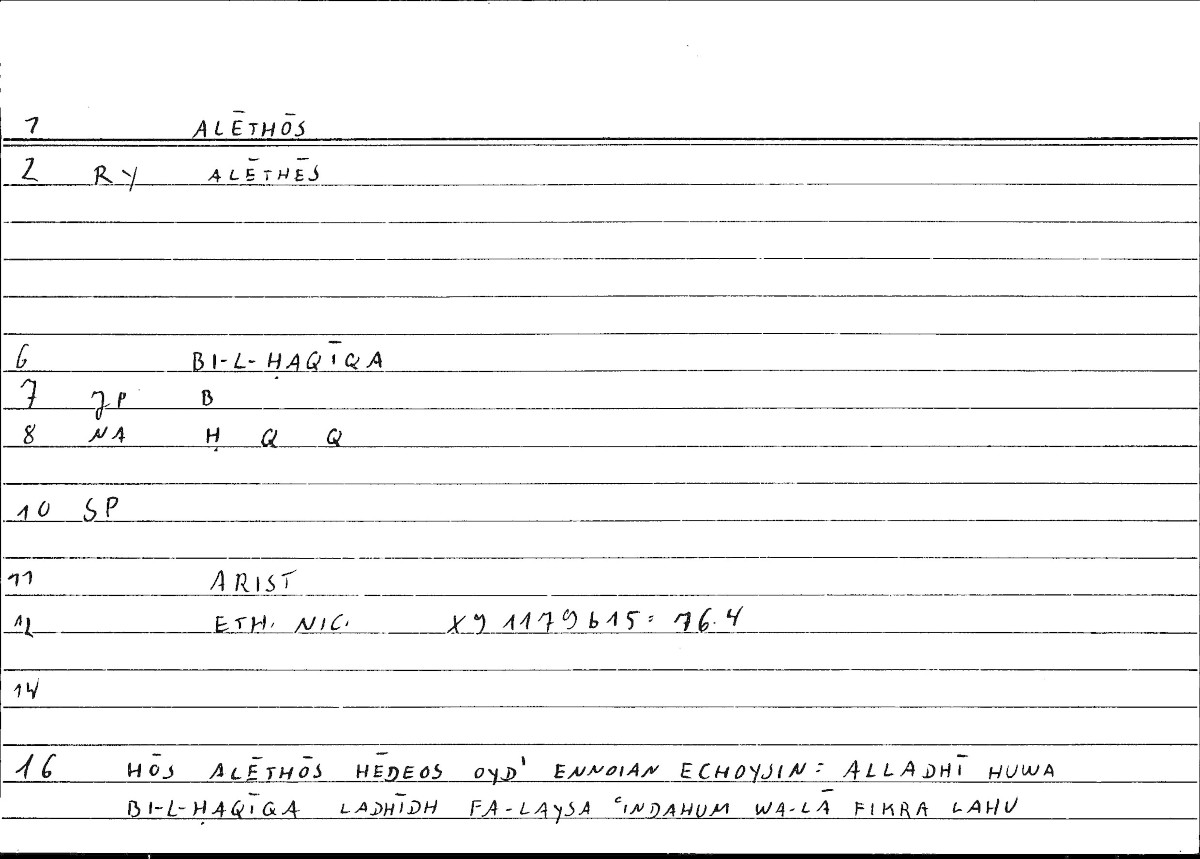 1 ALĒTHŌS
2 RY ALĒTHĒS
6 BI-L-ḤAQĪQA
7 JP B
8 NA Ḥ Q Q
10 SP
11 ARIST
12 ETH. NIC. X9 1179b15: 76.4
14
16 HŌS ALĒTHŌS HĒDEOS OYD' ENNOIAN ECHOYSIN: ALLADHĪ HUWA
BI-L-ḤAQĪQA LADHĪDH FA-LAYSA ʿINDAHUM WA-LĀ FIKRA LAHU